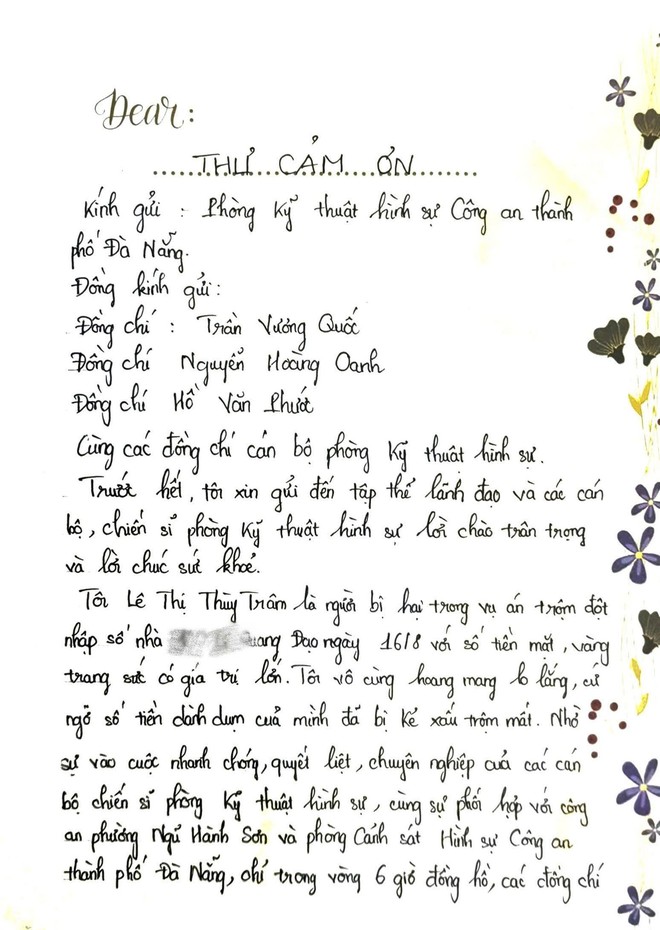 Dear:
THƯ CẢM ƠN
Kính gửi : Phòng Kỹ thuật hình sự Công an thành
phố Đà Nẵng.
Đồng kính gửi:
Đồng chí : Trần Vương Quốc
Đồng chí Nguyễn Hoàng Oanh
Đồng chí Hồ Văn Phướt
Cùng các đồng chí cán bộ phòng Kỹ thuật hình sự.
Trước hết, tôi xin gửi đến tập thể lãnh đạo và các cán
bộ, chiến sĩ phòng Kỹ thuật hình sự lời chào trân trọng
và lời chúc sức khoẻ.
Tôi Lê Thị Thùy Trâm là người bị hại trong vụ án trộm đột
nhập số nhà uang Đạo ngày 16/8 với số tiền mặt, vàng
trang sức có giá trị lớn. Tôi vô cùng hoang mang lo lắng, cứ
ngỡ số tiền dành dụm của mình đã bị kẻ xấu trộm mất. Nhờ
sự vào cuộc nhanh chóng, quyết liệt, chuyên nghiệp của các cán
bộ chiến sĩ phòng Kỹ thuật hình sự, cùng sự phối hợp với công
an phường Ngũ Hành Sơn và phòng Cảnh sát Hình sự Công an
thành phố Đà Nẵng, chỉ trong vòng 6 giờ đồng hồ, các đồng chí